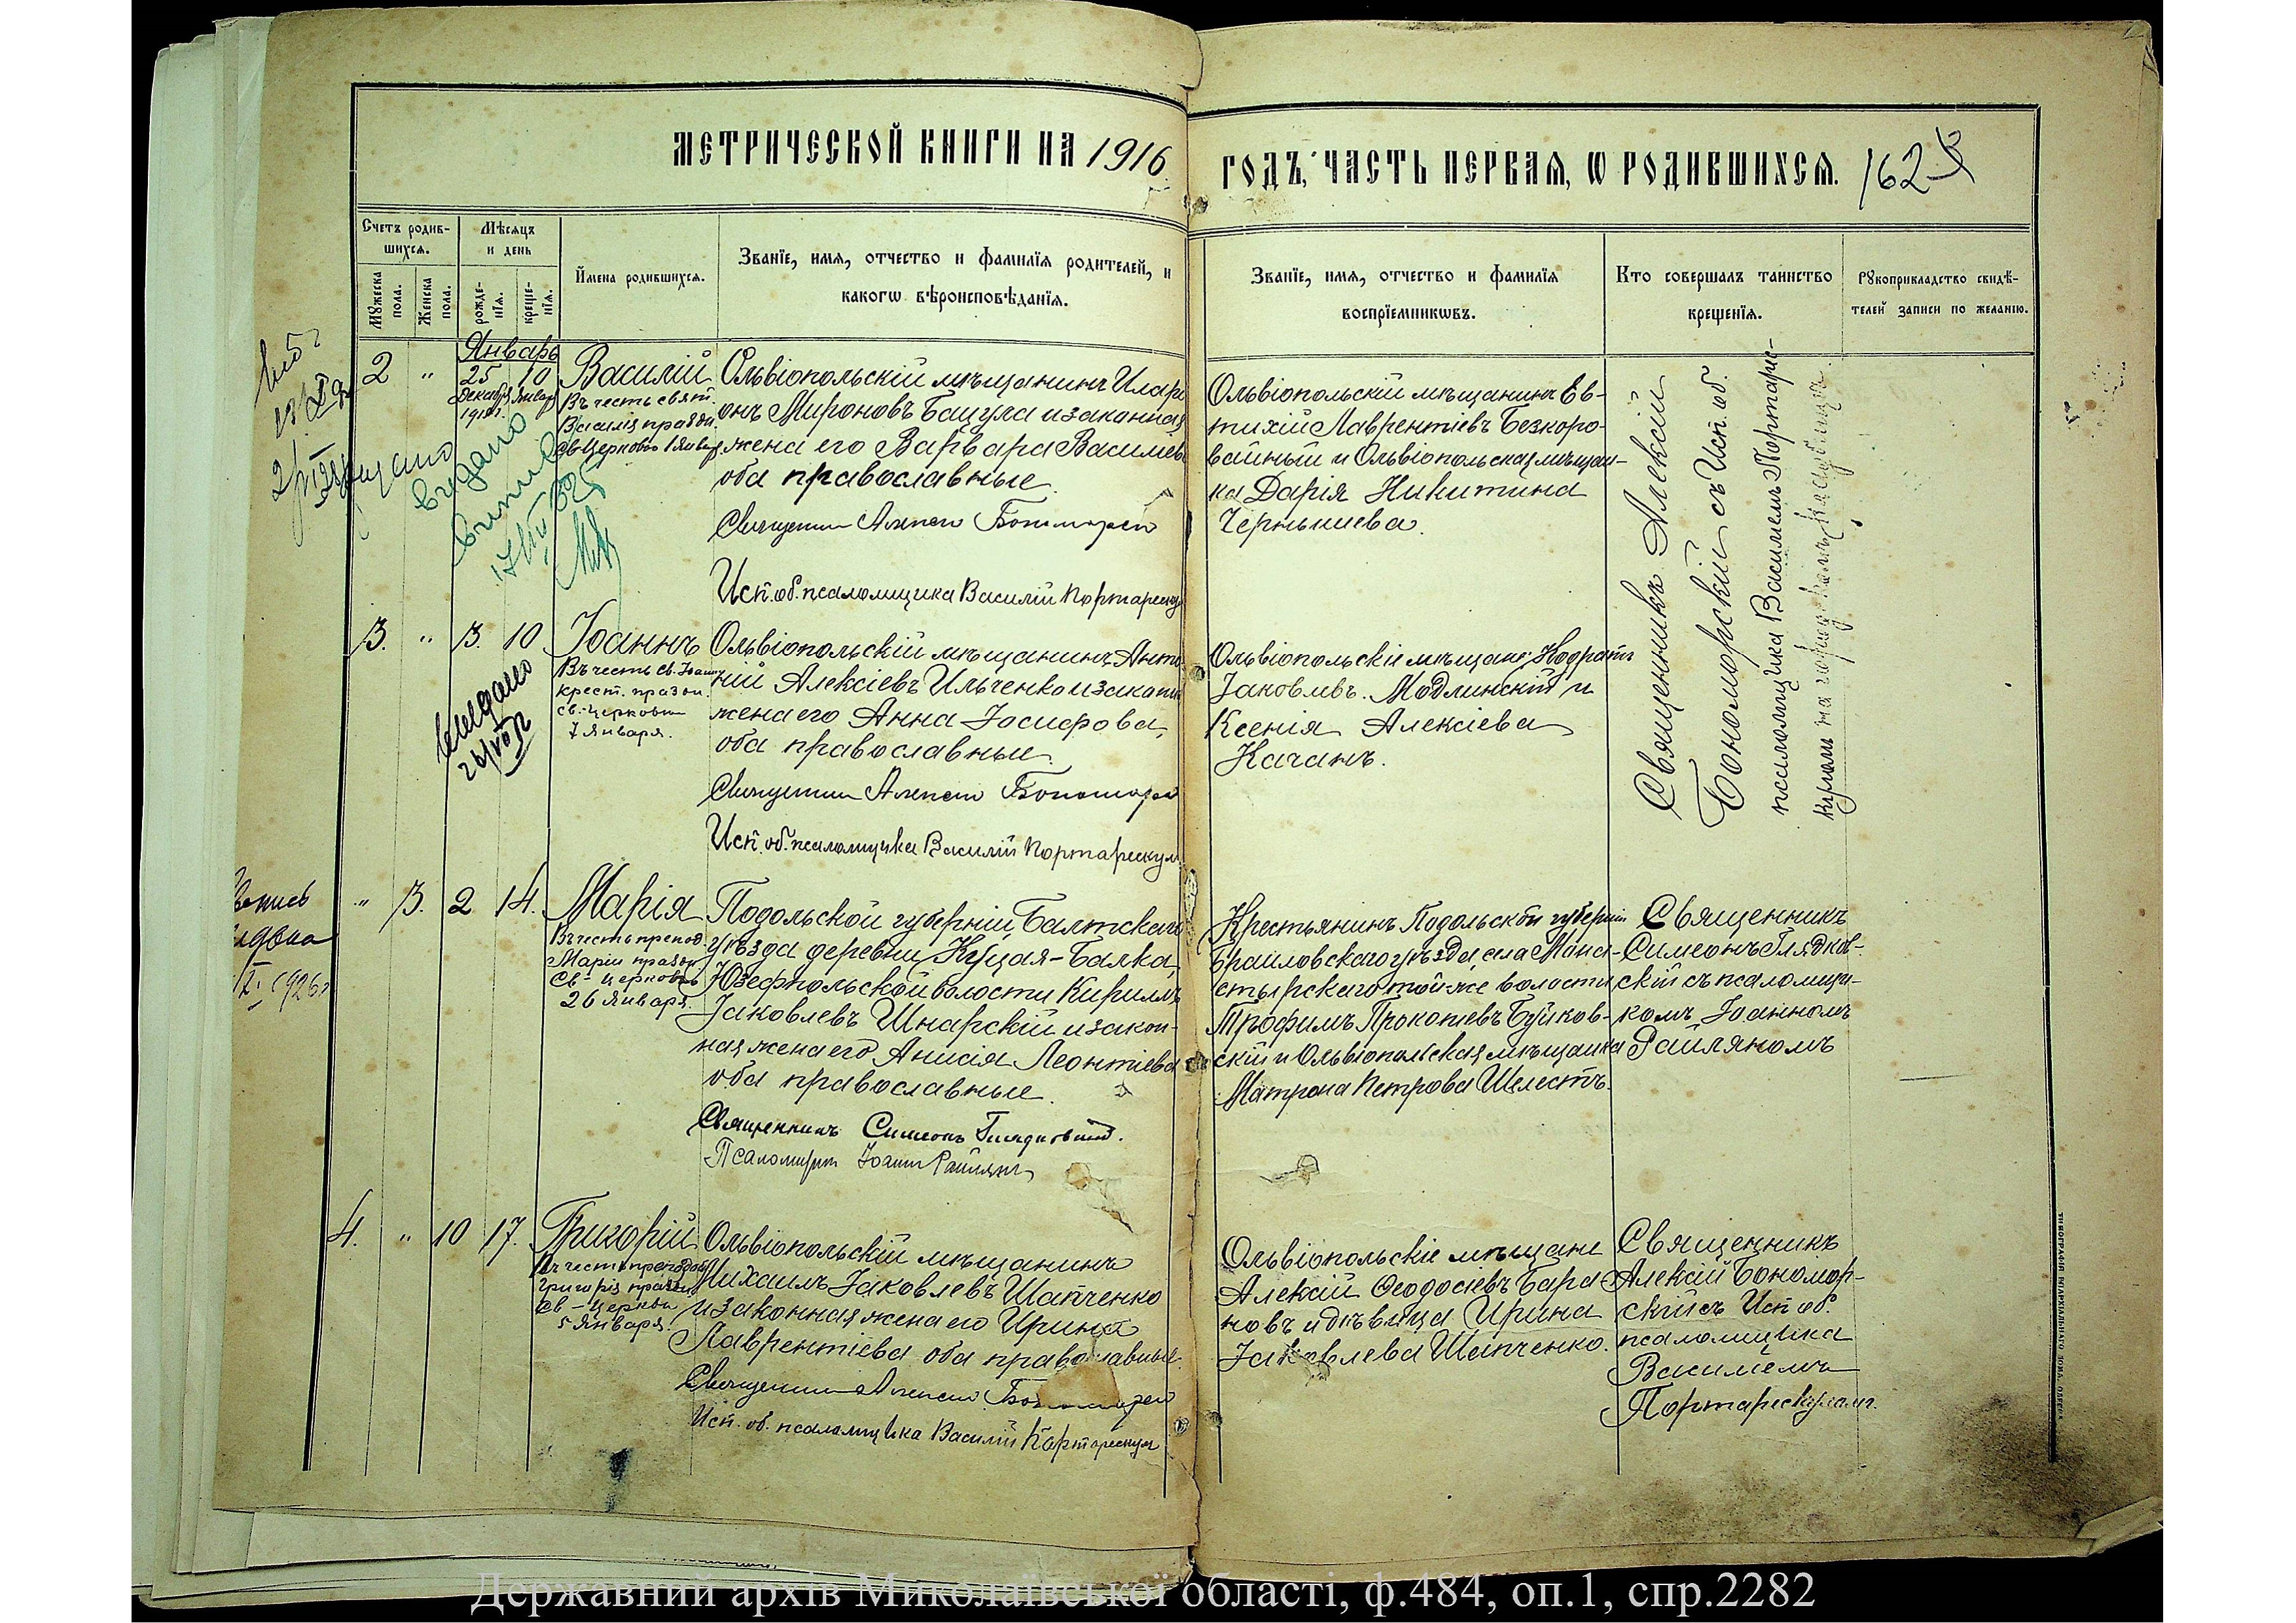 МЕТРИЧЕСКОЙ КНИГИ НА 1916
ГОДЪ, ЧАСТЬ ПЕРВАЯ, Ѡ РОДИВШИХСЯ. 162
Счетъ родив-
шихся.
Мужеска пола.
Женска пола.
Мѣсяцъ
и день
рожде-
нїя.
креще-
нїя.
Имена родившихся.
Званїе, имя, отчество и фамилїя родителей, и
какогѡ вѣроисповѣданїя.
Званїе, имя, отчество и фамилїя
воспрїемникѡвъ.
Кто совершалъ таинство
крещенїя.
Рукоприкладство свидѣ-
телей записи по желанїю.
Январь
2 " 25 10
Декабря Январ
Василій
Въ честь свят.
Василія праздн.
св. Церковью 1 Январ
Ольвіопольскій мѣщанинъ Илари
онъ Мироновъ Бацула и законная
жена его Варвара Васильев
оба православные.
Священник Алексей Бономорск
Исп. об. псаломщика Василій Портарескул
Ольвіопольскій мѣщанинъ Ев-
тихій Лаврентіевъ Безкоро-
вайный и Ольвіопольская мѣщан-
ка Дарія Никитина
Чернышева.
Священникъ Алексій
Бономорскій съ Исп. об.
псаломщика Василіемъ Портаре-
выдано
3. " 3. 10
Іоаннъ
Въ честь св. Іоанна
крест. празд.
св. Церковью
7 Января.
Ольвіопольскій мѣщанинъ Анто
ній Алексіевъ Ильченко и законн
жена его Анна Іосифова,
оба православные.
Священник Алексей Бономорск
Исп. об. псаломщика Василій Портарескул
Ольвіопольскіе мѣщане: Кодратъ
Іаковлевъ Модлинскій и
Ксенія Алексіева
Качанъ.
выдано
" 3. 2 14.
Марія
Въ честь препод.
Маріи праздн
Св. церковью
26 Января
Подольской губерніи, Балтскаго
уѣзда деревни Куцая-Балка,
Юзефпольской волости Кириллъ
Іаковлевъ Шнарскій и закон-
ная жена его Анисія Леонтіева
оба православные.
Священникъ Симеонъ Глядковскій.
Псаломщик Іоанн Райлян
Крестьянинъ Подольской губерніи
Браиловскаго уѣзда, села Мана-
стырскаго той-же волости
Трофимъ Прокопіевъ Буйков-
скій и Ольвіопольская мѣщанка
Матрона Петрова Шелестъ.
Священникъ
Симеонъ Глядков-
скій съ псаломщи-
комъ Іоанномъ
Райляномъ
1926
4. " 10 17.
Григорій
Въ честь преподоб
Григорія праздн
Св. церковью
5 Января.
Ольвіопольскій мѣщанинъ
Михаилъ Іаковлевъ Шапченко
и законная жена его Ирина
Лаврентіева оба православные.
Священник Алексей Бономорск
Исп. об. псаломщика Василій Портарескул
Ольвіопольскіе мѣщане
Алексій Ѳеодосіевъ Бара
новъ и дѣвица Ирина
Іаковлева Шапченко.
Священникъ
Алексій Бономор-
скій съ Исп. об.
псаломщика
Василіемъ
Портарескуломъ.
Державний архів Миколаївської області, ф.484, оп.1, спр.2282